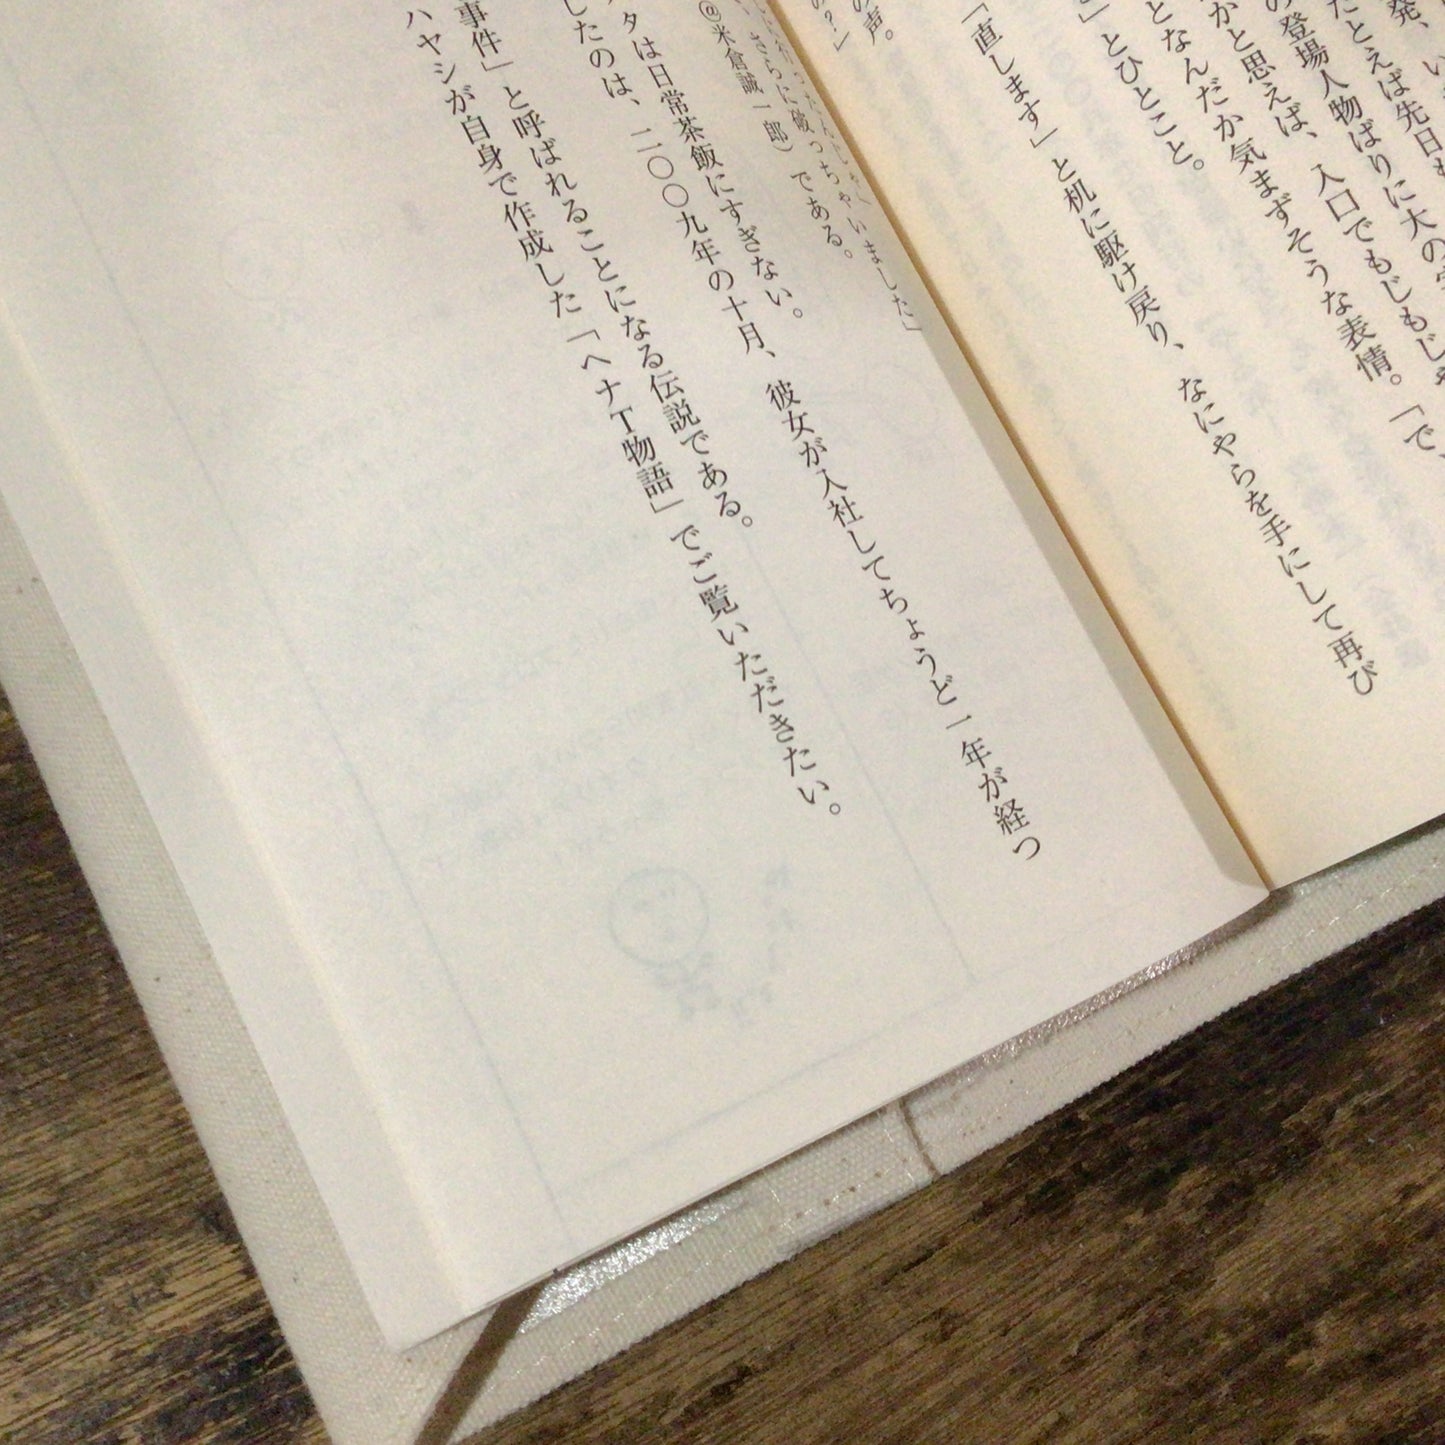 発、い
たとえば先日も
の登場人物ばりに大の
かと思えば、入口でもじもじ
となんだか気まずそうな表情。「で、
」とひとこと。
「直します」と机に駆け戻り、なにやらを手にして再び
の声。
の？」
さらに破っちゃいました」
@米倉誠一郎）である。
タは日常茶飯にすぎない。
したのは、二〇〇九年の十月、彼女が入社してちょうど一年が経つ
事件」と呼ばれることになる伝説である。
ハヤシが自身で作成した「ヘナT物語」でご覧いただきたい。